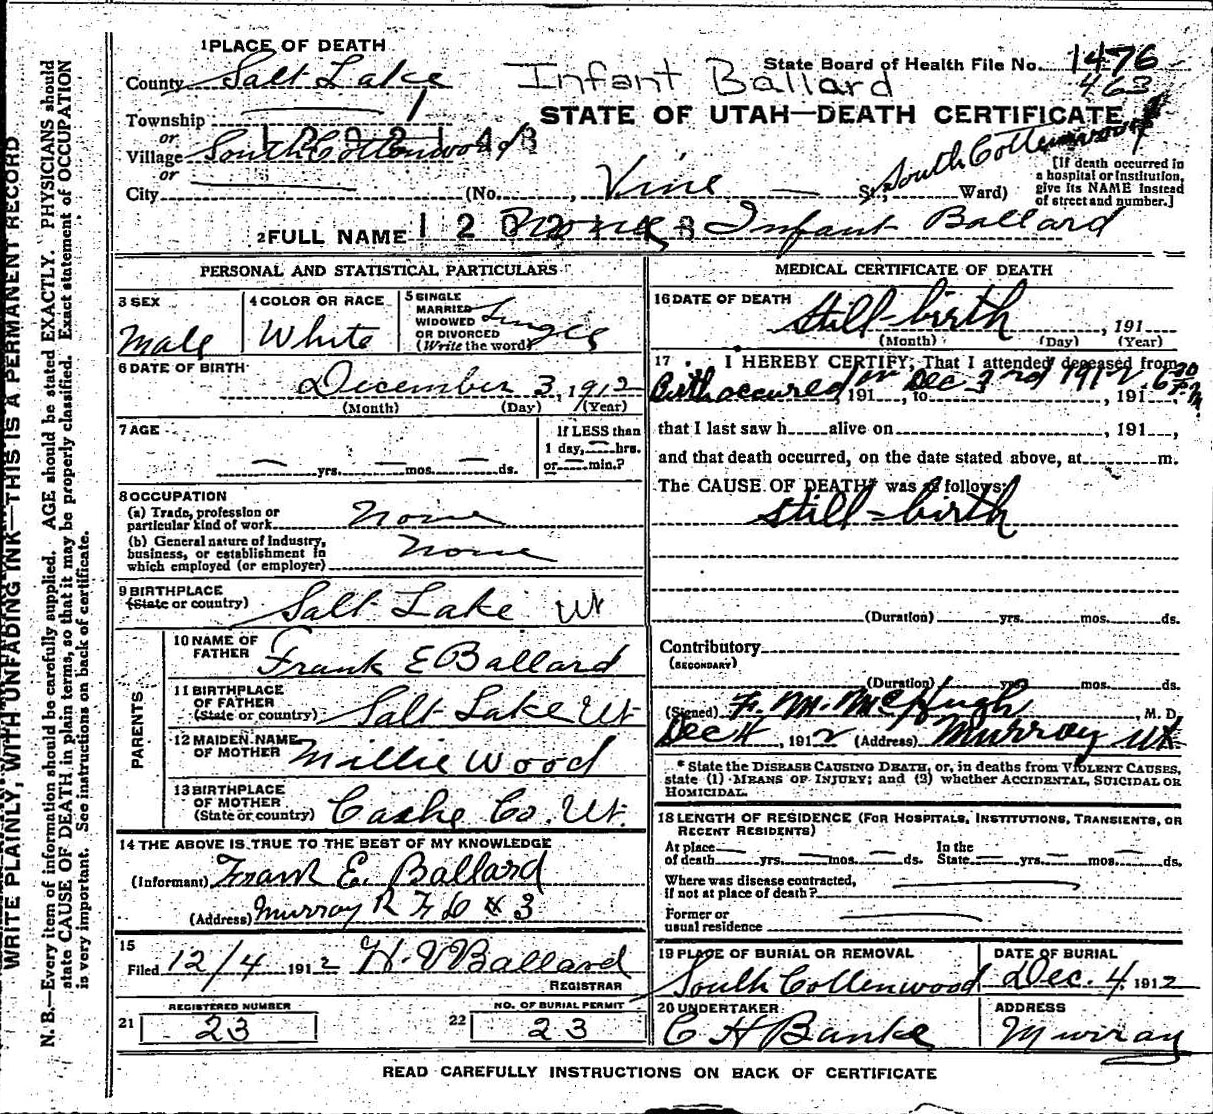 WRITE PLAINLY, WITH UNFADING INK—THIS IS A PERMANENT RECORD
N. B.—Every item of information should be carefully supplied. AGE should be stated EXACTLY. PHYSICIANS should
state CAUSE OF DEATH, in plain terms, so that it may be properly classified. Exact statement of OCCUPATION
is very important. See instructions on back of certificate.
1 PLACE OF DEATH
County Salt Lake
Township
or
Village South Cottonwood
or
City
Infant Ballard
State Board of Health File No. 1476
463
STATE OF UTAH—DEATH CERTIFICATE
(No. Vine St., South Cottonwood Ward)
[If death occurred in
a hospital or institution,
give its NAME instead
of street and number.]
2 FULL NAME None Infant Ballard
PERSONAL AND STATISTICAL PARTICULARS
3 SEX
Male
4 COLOR OR RACE
White
5 SINGLE
MARRIED
WIDOWED
OR DIVORCED
(Write the word)
Single
6 DATE OF BIRTH
December 3, 1912
(Month) (Day) (Year)
7 AGE
— yrs. — mos. — ds.
If LESS than
1 day, — hrs.
or — min.?
8 OCCUPATION
(a) Trade, profession or
particular kind of work None
(b) General nature of Industry,
business, or establishment in
which employed (or employer) None
9 BIRTHPLACE
(State or country) Salt Lake Ut
PARENTS
10 NAME OF
FATHER Frank E Ballard
11 BIRTHPLACE
OF FATHER
(State or country) Salt Lake Ut
12 MAIDEN NAME
OF MOTHER Millie Wood
13 BIRTHPLACE
OF MOTHER
(State or country) Cashe Co. Ut.
14 THE ABOVE IS TRUE TO THE BEST OF MY KNOWLEDGE
(Informant) Frank E. Ballard
(Address) Murray R F D # 3
15
Filed 12/4 1912 H. V Ballard
REGISTRAR
REGISTERED NUMBER
21 23
NO. OF BURIAL PERMIT
22 23
MEDICAL CERTIFICATE OF DEATH
16 DATE OF DEATH
still-birth, 191
(Month) (Day) (Year)
17 I HEREBY CERTIFY, That I attended deceased from
Birth occured on Dec 3rd 1912 6 30 P.M.
, 191, to , 191,
that I last saw h alive on , 191,
and that death occurred, on the date stated above, at m.
The CAUSE OF DEATH* was as follows:
still-birth
(Duration) yrs. mos. ds.
Contributory
(SECONDARY)
(Duration) yrs. mos. ds.
(Signed) F. M. McHugh, M. D.
Dec 4, 1912 (Address) Murray Ut.
* State the DISEASE CAUSING DEATH, or, in deaths from VIOLENT CAUSES,
state (1) MEANS OF INJURY; and (2) whether ACCIDENTAL, SUICIDAL OR
HOMICIDAL.
18 LENGTH OF RESIDENCE (FOR HOSPITALS, INSTITUTIONS, TRANSIENTS, OR
RECENT RESIDENTS)
At place
of death — yrs. — mos. — ds.
In the
State — yrs. — mos. — ds.
Where was disease contracted,
if not at place of death?
Former or
usual residence
19 PLACE OF BURIAL OR REMOVAL
South Cottenwood
DATE OF BURIAL
Dec. 4, 1912
20 UNDERTAKER
C H Banke
ADDRESS
Murray
READ CAREFULLY INSTRUCTIONS ON BACK OF CERTIFICATE